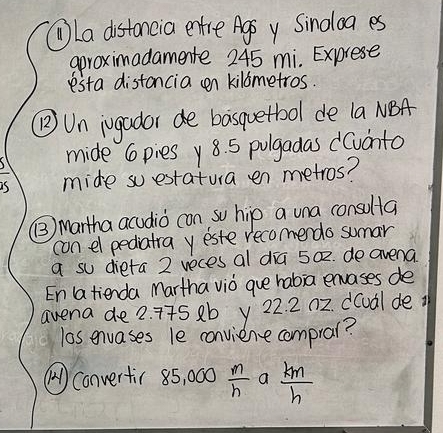 ⑪ La distancia entre Ags y Sinaloa es
aproximadamente 245 mi. Exprese
ésta distancia en kilómetros.
⑫ Un jugador de básquetbol de la NBA
mide 6 pies y 8.5 pulgadas ¿Cuánto
mide su estatura en metros?
⑬ Martha acudió con su hijo a una consulta
con el pediatra y éste recomendo sumar
a su dieta 2 veces al día 5 oz. de avena.
En la tienda Martha vió que había envases de
avena de 2.775 lb y 22.2 oz. ¿Cuál de
los envases le conviene comprar?
⑭ Convertir 85,000 m/h a km/h